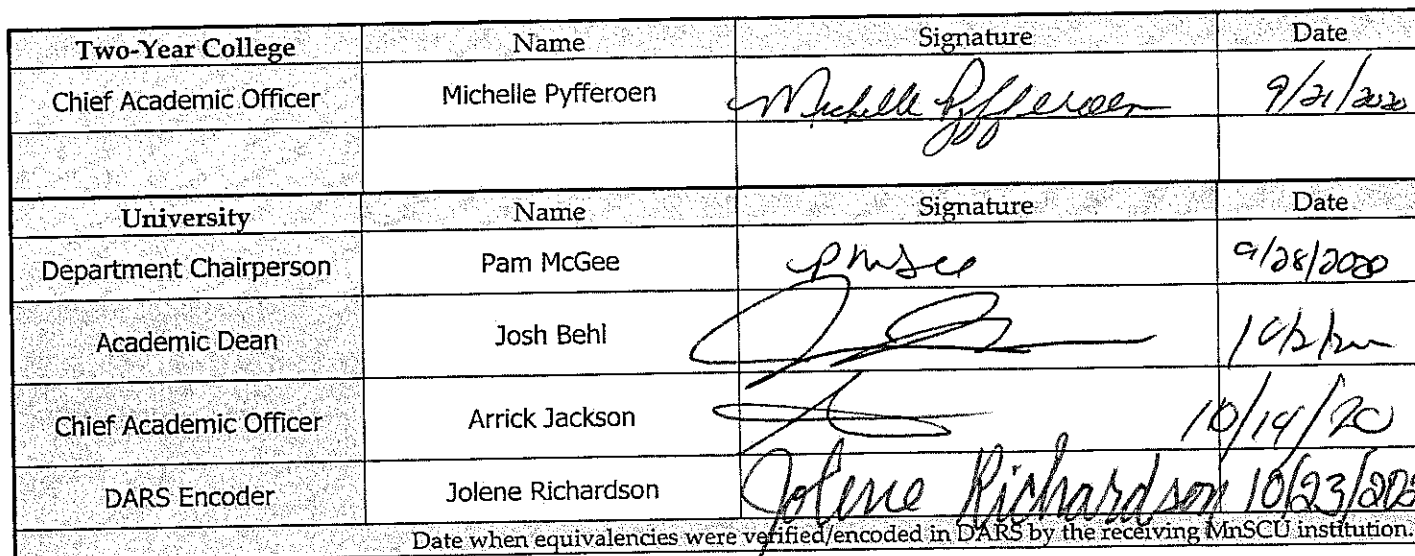 Two-Year College Name Signature Date
Chief Academic Officer Michelle Pyfferoen Michelle Pyfferoen 9/21/2020
University Name Signature Date
Department Chairperson Pam McGee PMcGee 9/28/2020
Academic Dean Josh Behl 10/2/20
Chief Academic Officer Arrick Jackson 10/14/20
DARS Encoder Jolene Richardson Jolene Richardson 10/23/202
Date when equivalencies were verified/encoded in DARS by the receiving MnSCU institution.